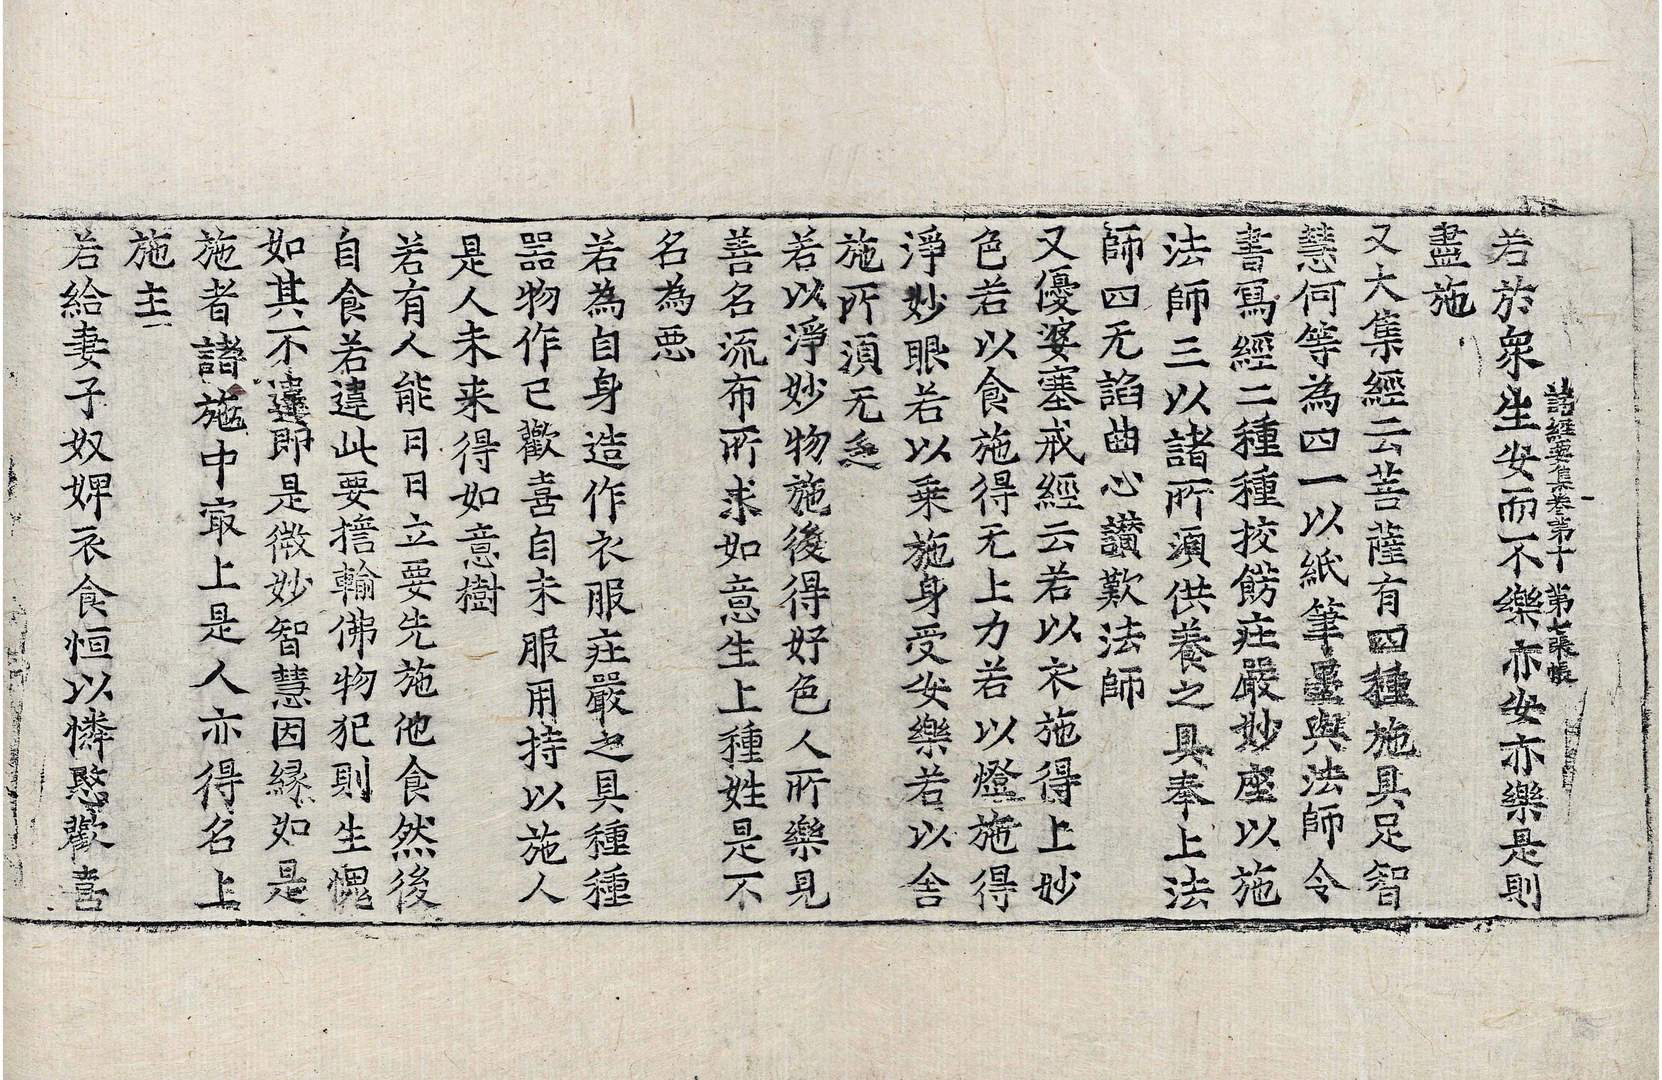 諸經要集卷第十　第七張　帳
若於衆生安而不樂亦安亦樂是則
盡施
又大集經云菩薩有四種施具足智
慧何等為四一以紙筆墨與法師令
書寫經二種種挍餝疘嚴妙座以施
法師三以諸所湏供養之具奉上法
師四无謟曲心讃歎法師
又優婆塞戒經云若以衣施得上妙
色若以食施得无上力若以燈施得
淨妙眼若以乗施身受安樂若以舍
施所湏无乏
若以淨妙物施後得好色人所樂見
善名流布所求如意生上種姓是不
名為悪
若為自身造作衣服疘嚴之具種種
噐物作已歡喜自未服用持以施人
是人未来得如意樹
若有人能日日立要先施他食然後
自食若違此要擔輸佛物犯則生愧
如其不違即是微妙智慧因緣如是
施者諸施中㝡上是人亦得名上
施主
若給妻子奴婢衣食恒以憐愍歡喜